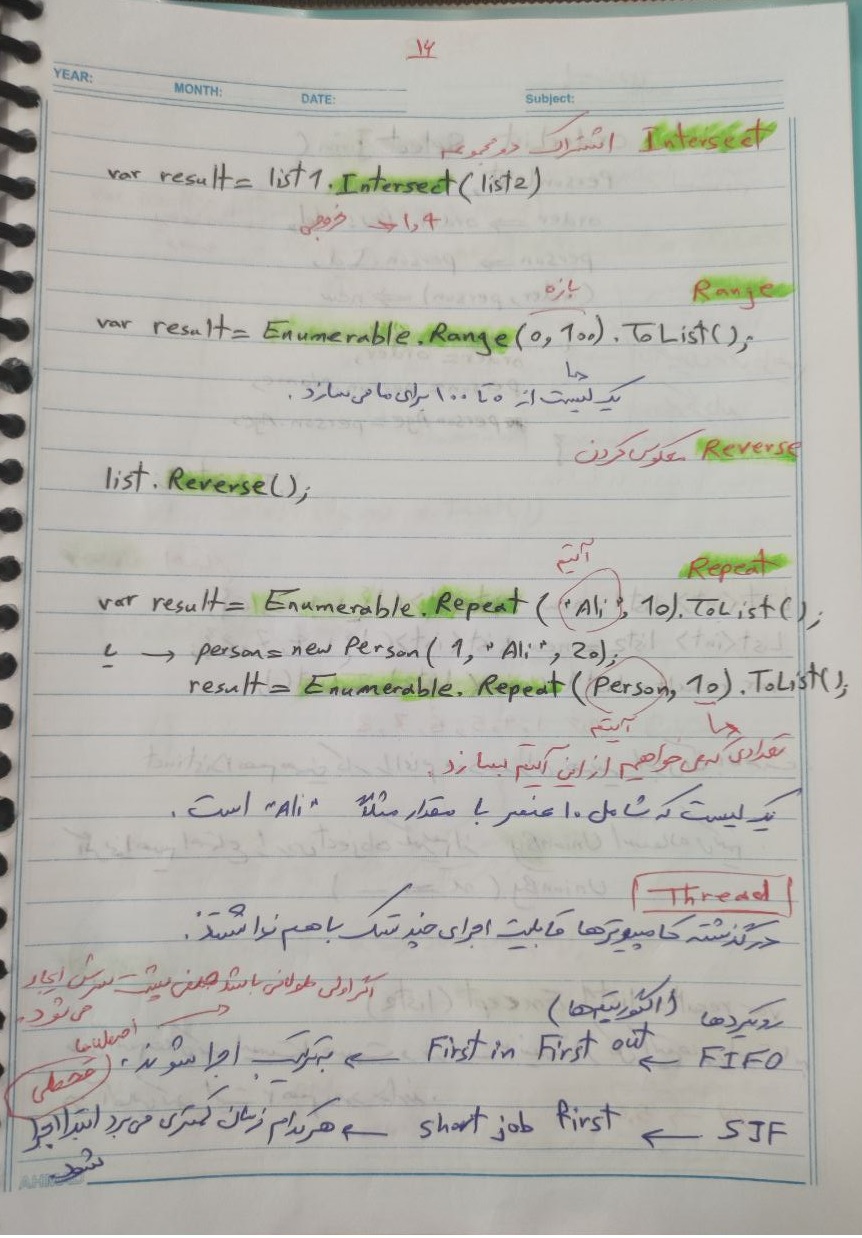 ۱۴
YEAR:
MONTH:
DATE:
Subject:
Intersect اشتراک دو مجموعه
var result = list1.Intersect(list2)
1,4 → خروجی
Range
بازه
var result = Enumerable.Range(0, 100).ToList();
یک لیست از ۰ تا ۱۰۰ برای ما می سازد.
Reverse معکوس کردن
list.Reverse();
Repeat
آیتم
var result = Enumerable.Repeat("Ali", 10).ToList();
یا → person = new Person(1, "Ali", 20);
result = Enumerable.Repeat(Person, 10).ToList();
آیتم
تعدادی که می خواهیم از این آیتم بسازد.
یک لیست که شامل ۱۰ عنصر با مقدار مثلاً "Ali" است.
Thread
در گذشته کامپیوترها قابلیت اجرای چند تسک با هم نداشتند.
اگر اولی طولانی باشد صفی پشت سرش ایجاد
می شود.
رویکردها (الگوریتمها)
FIFO ← First in First out ← به ترتیب اجرا شوند.
قحطی
SJF ← short job first ← هرکدام زمان کمتری می برد ابتدا اجرا
شود